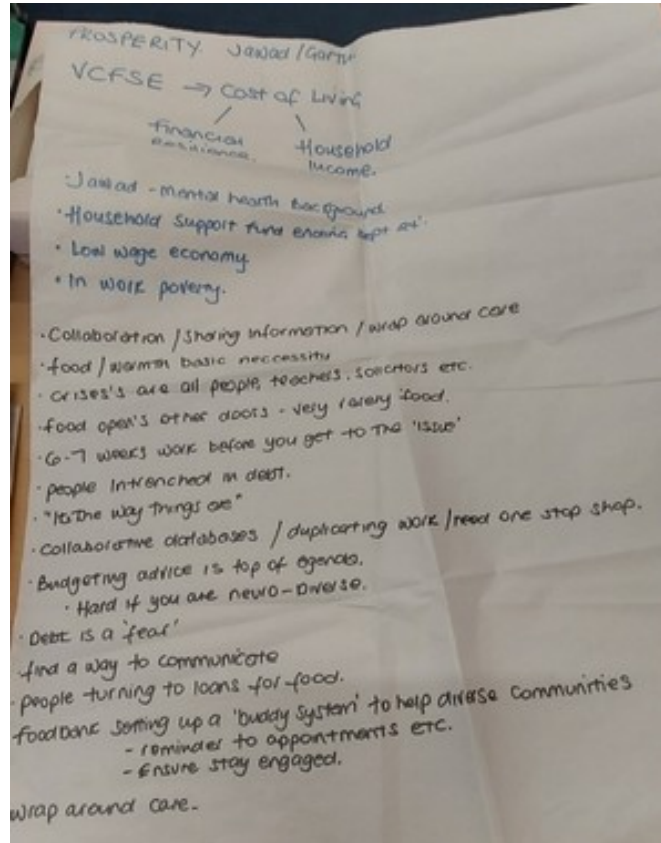 PROSPERITY Jawad/
VCFSE → Cost of Living
Financial Household
Resilience. Income.
· Jawad - Mental health Background
· Household Support fund ending sept 24'.
· Low wage economy
· In work poverty.
· Collaboration / Sharing Information / wrap around care
· food / warmth basic neccessity
· Crises's are all people, teachers, solicitors etc.
· food open's other doors - very rarely 'food.
· 6-7 weeks work before you get to the 'issue'
· people Intrenched in debt.
· "Its The way things are"
· Collaborative databases / duplicating work / need one stop shop.
· Budgeting advice is top of agenda.
· Hard if you are neuro-Diverse.
· Debt is a 'fear'
find a way to communicate
· people turning to loans for food.
foodbank setting up a 'buddy system' to help diverse communities
- reminder to appointments etc.
- Ensure stay engaged.
wrap around care.